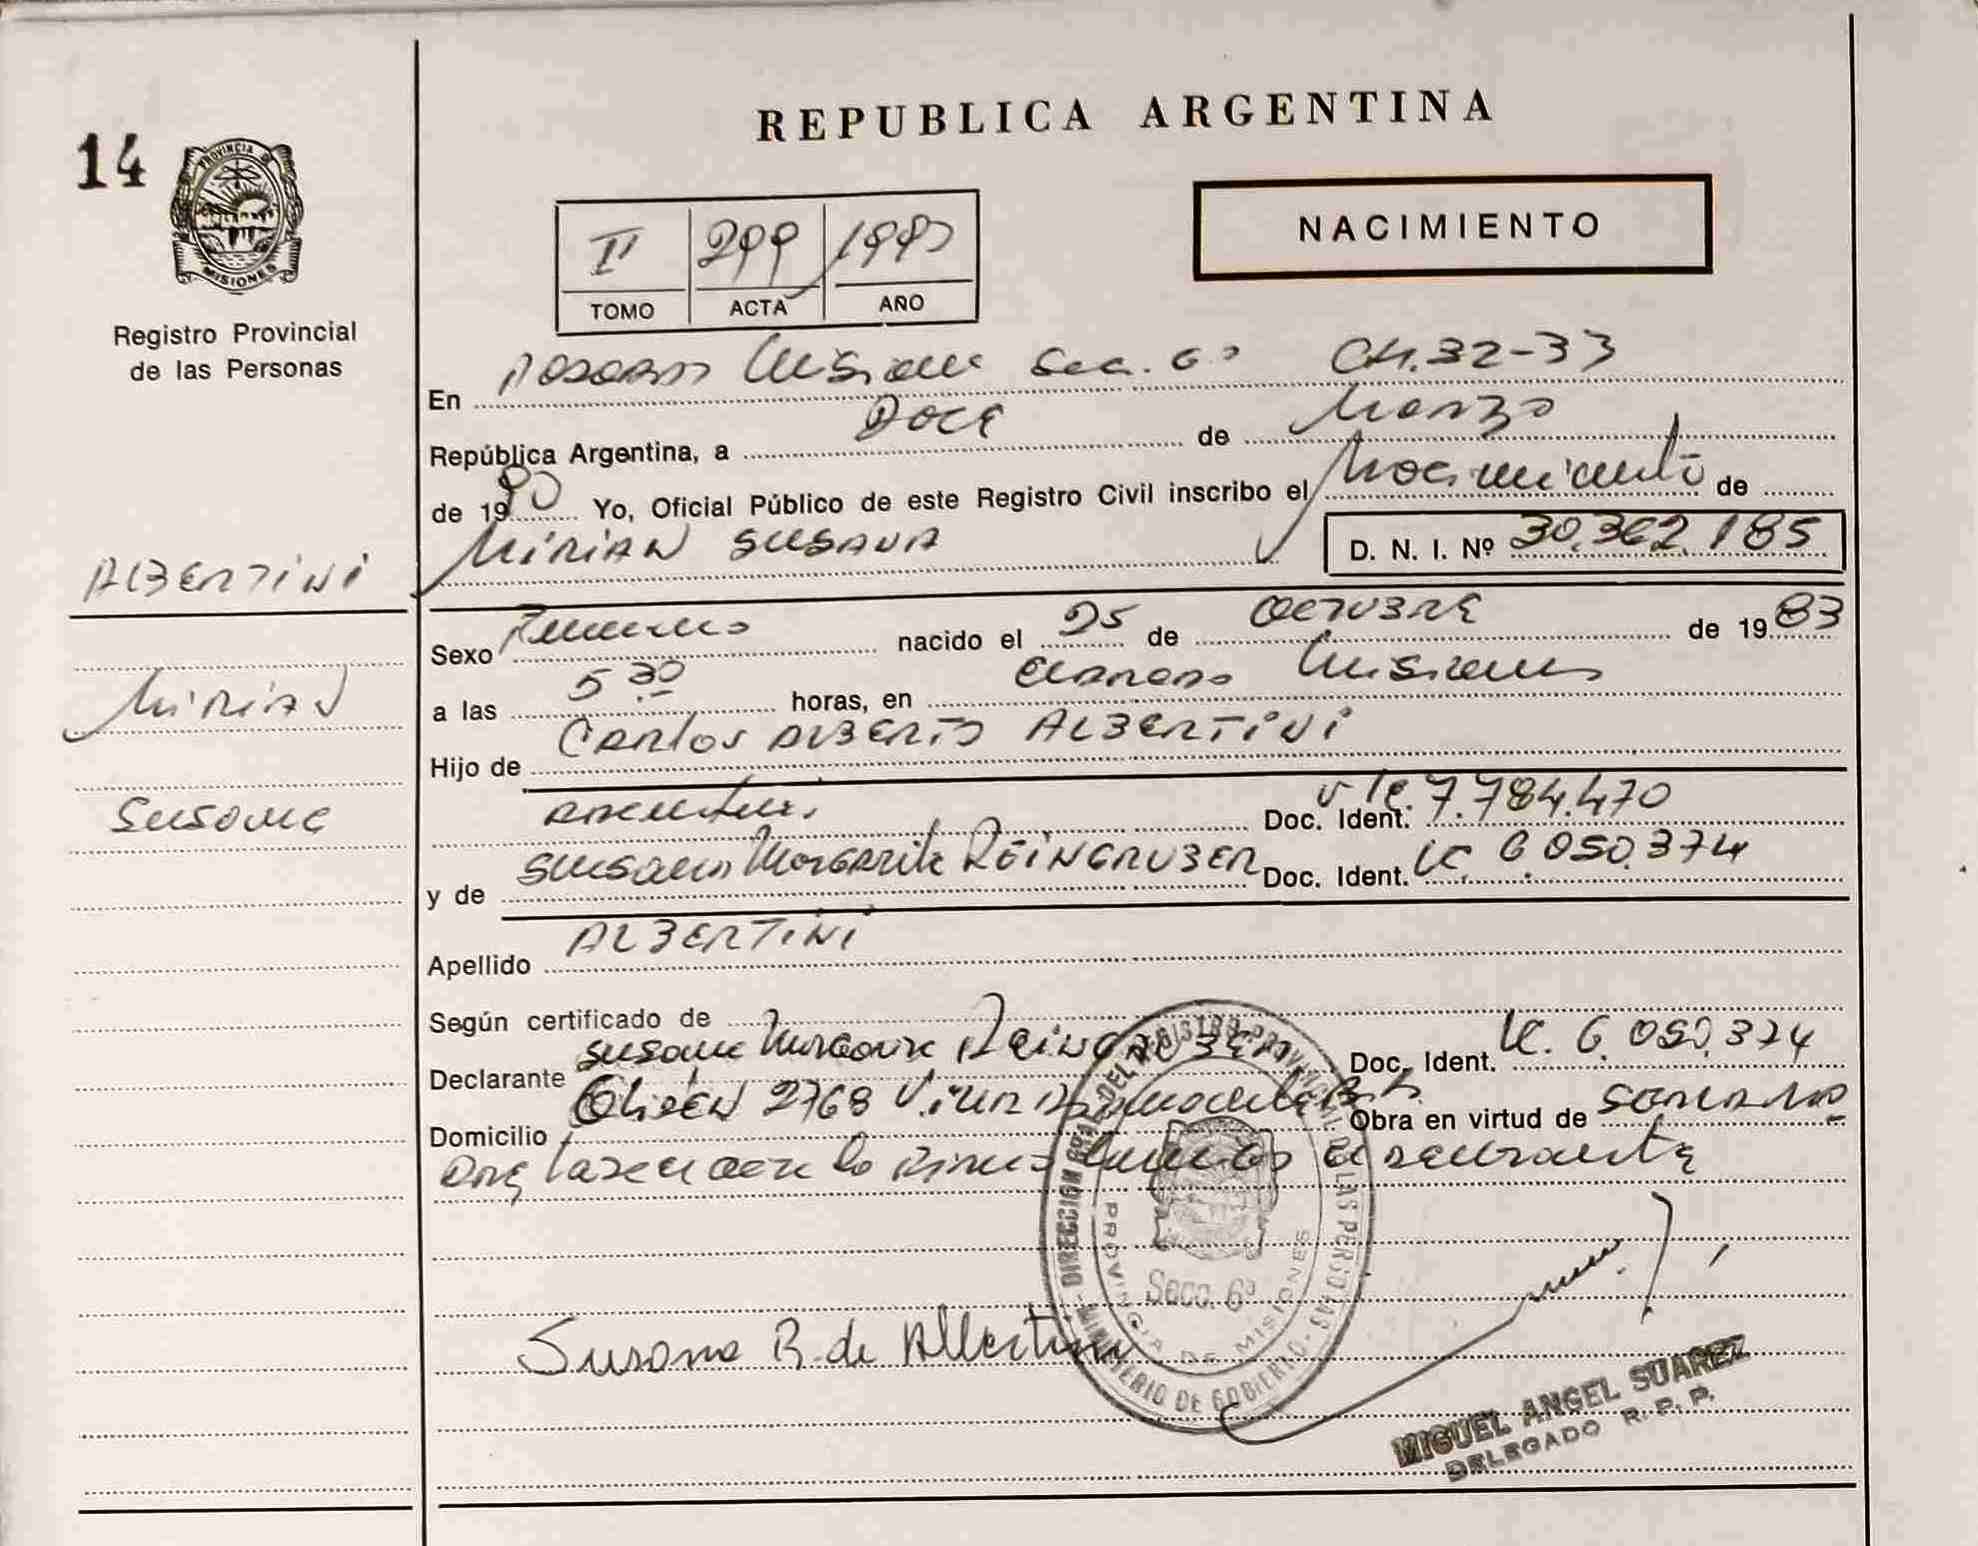 REPUBLICA ARGENTINA
14
PROVINCIA DE
MISIONES
Registro Provincial
de las Personas
NACIMIENTO
II 299
TOMO ACTA AÑO
En Posadas Misiones Secc. 6ª CH. 32-33
República Argentina, a Doce de Marzo
de 19 Yo, Oficial Público de este Registro Civil inscribo el Nacimiento de
Mirian Susana
D. N. I. Nº 30.362.185
ALBERTINI
Mirian
Susana
Sexo Femenino nacido el 25 de Octubre de 1983
a las 5 30 horas, en Eldorado Misiones
Hijo de Carlos Alberto ALBERTINI
argentino Doc. Ident. 7.784.470
y de Susana Margarita REINGRUBER Doc. Ident. LC. 6.050.374
Apellido ALBERTINI
Según certificado de
Declarante Susana Margarita Reingruber Doc. Ident. LC. 6.050.374
Domicilio 2768 Obra en virtud de
la declarante
DIRECCION GRAL DEL REGISTRO PROVINCIAL DE LAS PERSONAS
MINISTERIO DE GOBIERNO
PROVINCIA DE MISIONES
Secc. 6ª
Susana R. de Albertini
MIGUEL ANGEL SUAREZ
DELEGADO R. P. P.